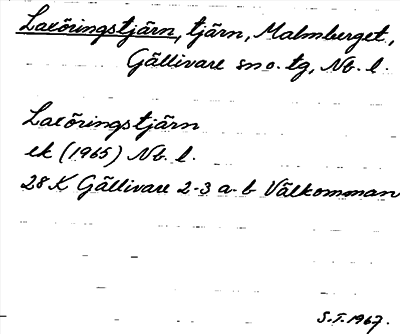 Laxöringstjärn, tjärn, Malmberget,
Gällivare sno. tg, Nb. l.
Laxöringstjärn
ek (1965) Nb. l.
28 K Gällivare 2-3 a-b Välkomman
S.T. 1967.